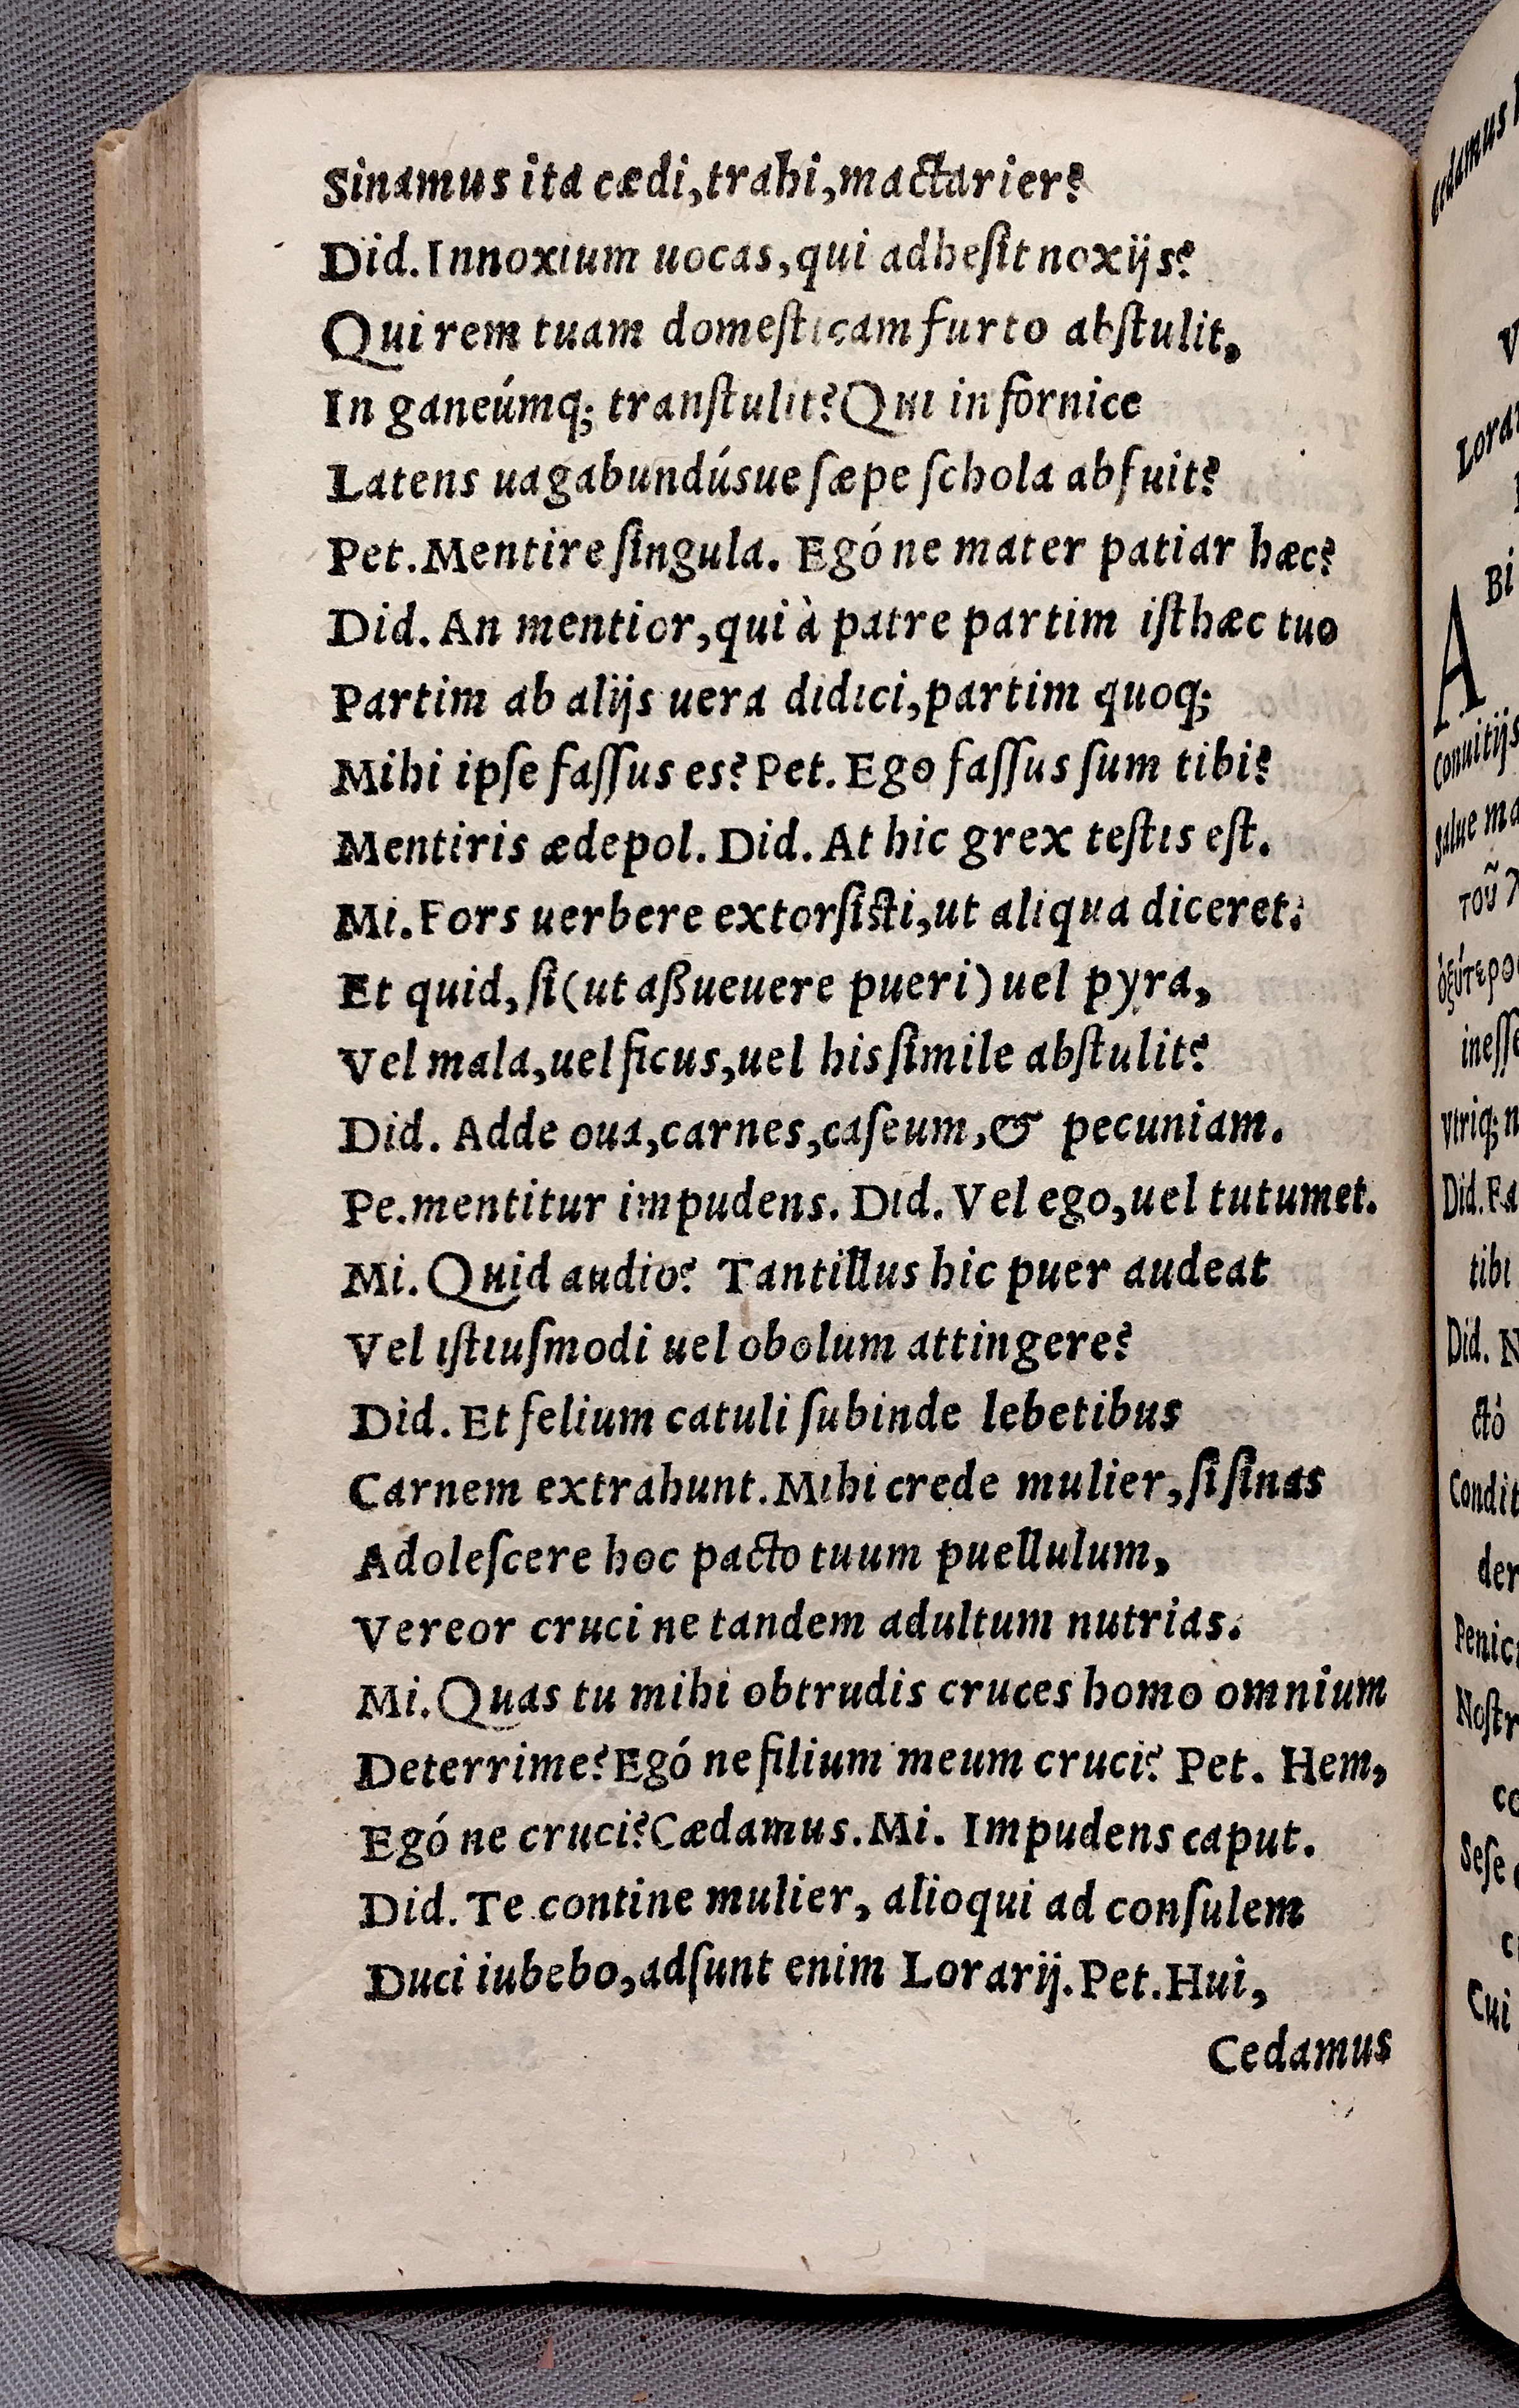 Sinamus ita cædi,trahi,mactarier?
Did.Innoxium uocas,qui adhesit noxijs?
Qui rem tuam domesticam furto abstulit,
In ganeúmq; transtulit?Qui in fornice
Latens uagabundúsue sæpe schola abfuit?
Pet.Mentire singula. Egó ne mater patiar hæc?
Did. An mentior,qui à patre partim isthæc tuo
Partim ab alijs uera didici,partim quoq;
Mihi ipse fassus es?Pet.Ego fassus sum tibi?
Mentiris ædepol. Did. At hic grex testis est.
Mi.Fors uerbere extorsisti,ut aliqua diceret:
Et quid,si(ut aßueuere pueri)uel pyra,
Vel mala,uel ficus,uel his simile abstulit?
Did. Adde oua,carnes,caseum,& pecuniam.
Pe.mentitur impudens. Did. Vel ego,uel tutumet.
Mi. Quid audio? Tantillus hic puer audeat
Vel istiusmodi uel obolum attingere?
Did. Et felium catuli subinde lebetibus
Carnem extrahunt.Mihi crede mulier,si sinas
Adolescere hoc pacto tuum puellulum,
Vereor cruci ne tandem adultum nutrias.
Mi.Quas tu mihi obtrudis cruces homo omnium
Deterrime?Egó ne filium meum cruci? Pet. Hem,
Egó ne cruci?Cædamus.Mi. Impudens caput.
Did. Te contine mulier, alioqui ad consulem
Duci iubebo,adsunt enim Lorarij.Pet.Hui,
Cedamus